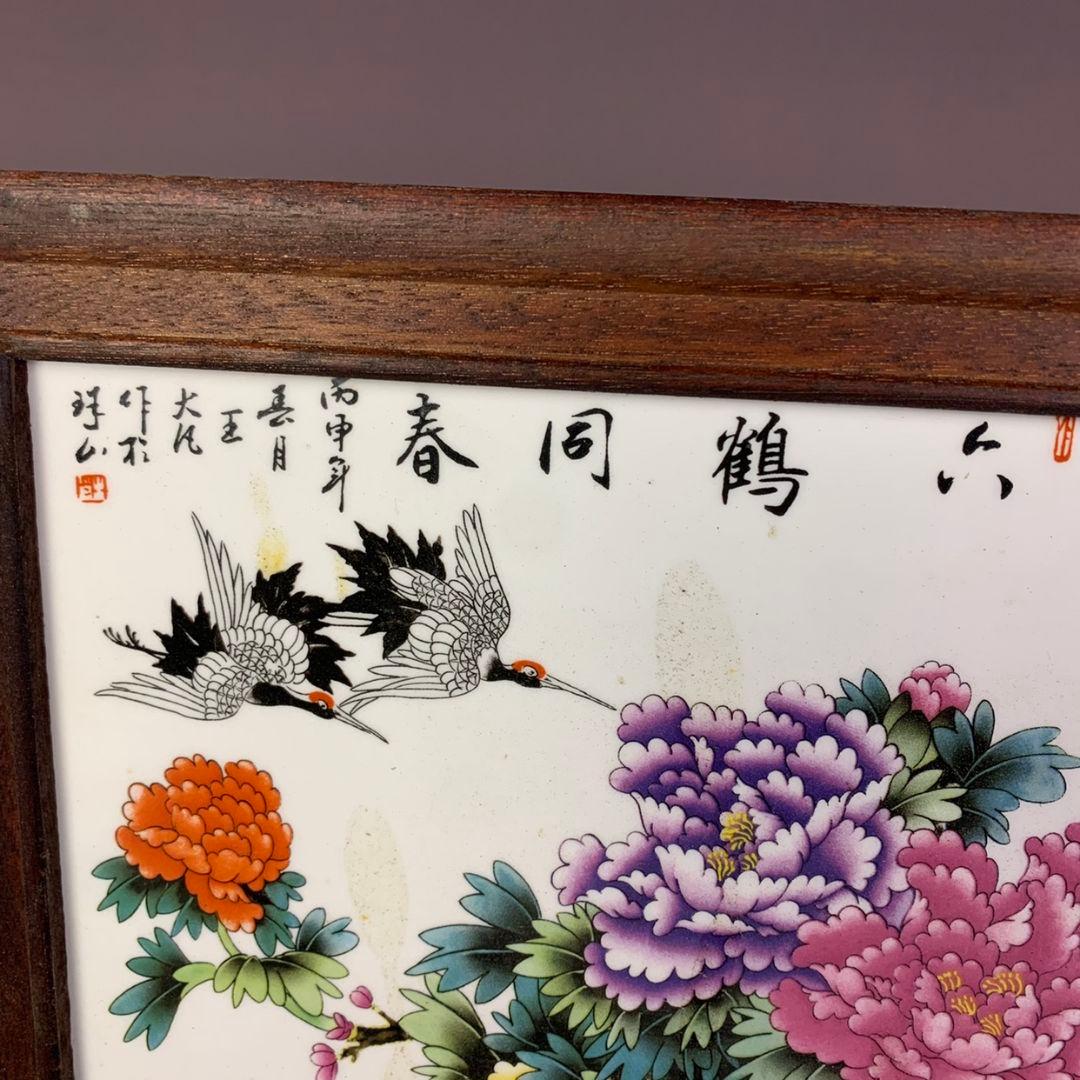 六鹤同春
丙申年
春月
王
大凡
作於
珠山